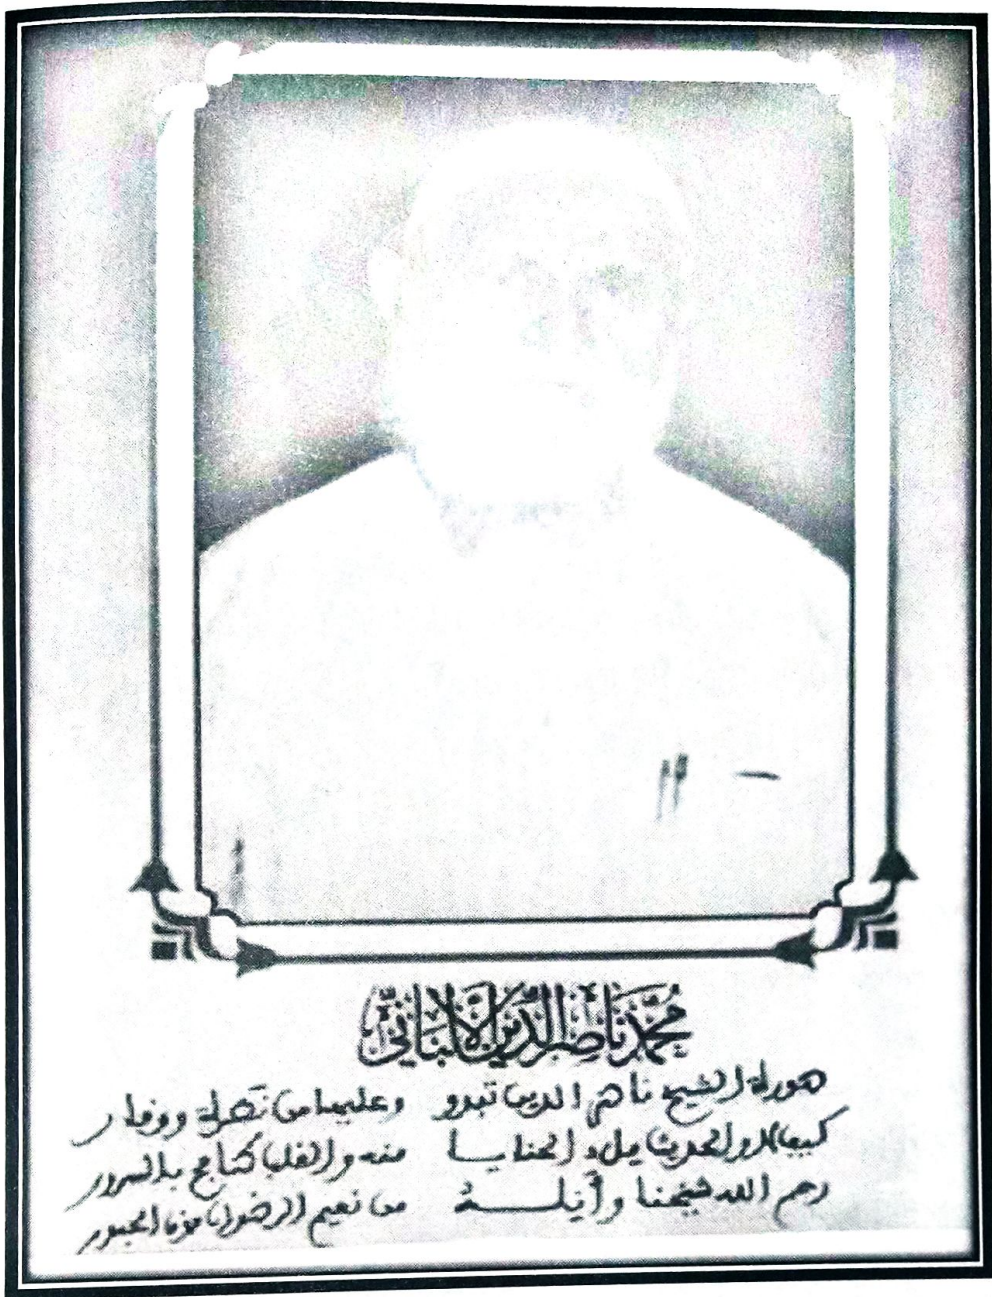 مُحَمَّد نَاصِر الدِّين الأَلْبَانِيّ
صورة الشيخ ناصر الدين تبدو وعليها من نضرة ووقار
كيف لا والحديث ملء الحنايا منه والقلب بالسرور
رحم الله شيخنا وأنله من نعيم الرضوان